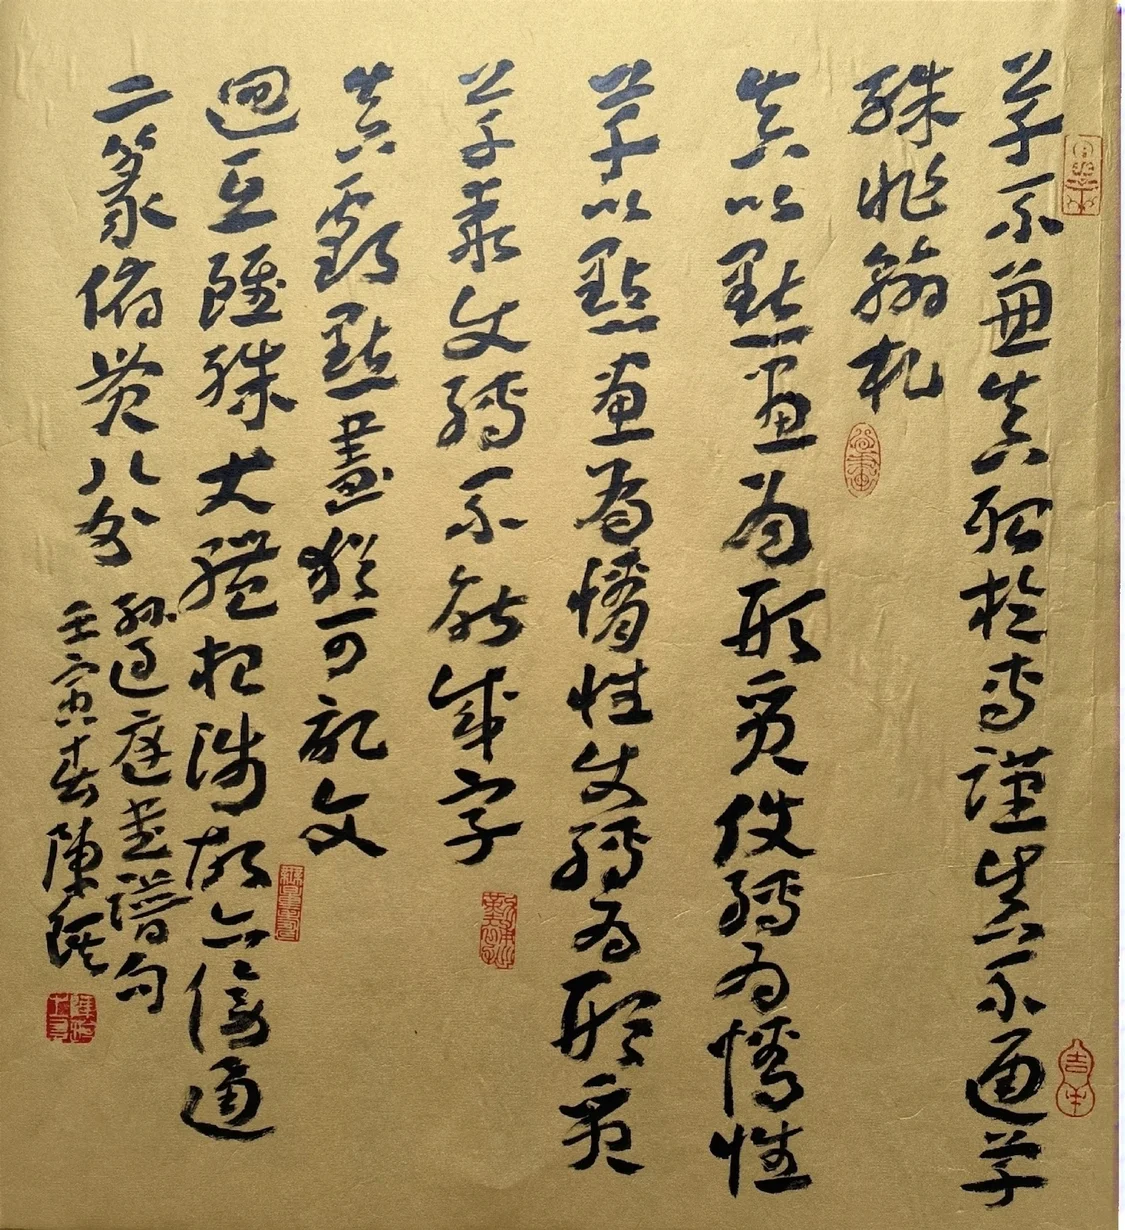 草不兼真殆於專謹真不通草
殊非翰札
真以點畫為形質使轉為情性
草以點畫為情性使轉為形質
草乖使轉不能成字
真虧點畫猶可記文
迴互雖殊大體相涉故亦傍通
二篆俯貫八分
孫過庭書譜句
壬寅春陳